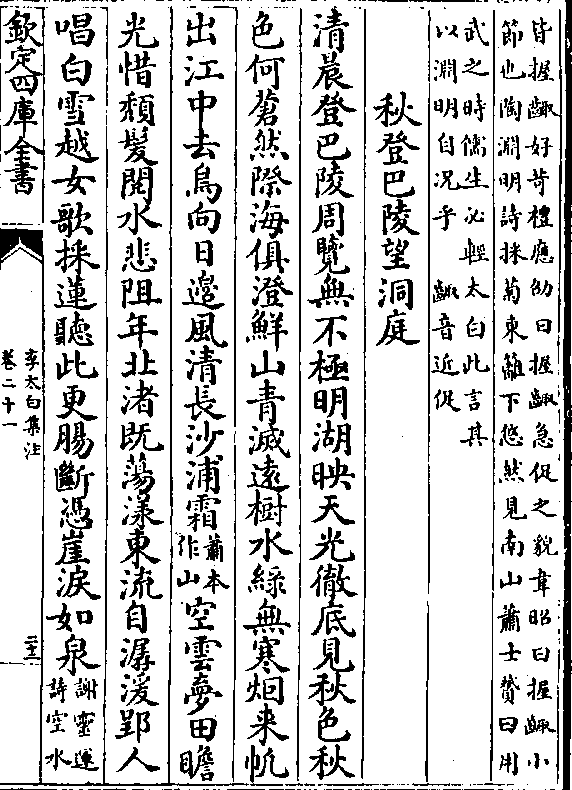 皆握齱好苛禮應劭曰握齱急促之貌韋昭曰握齱小
節也陶淵明詩採菊東籬下悠然見南山蕭士贇曰用
武之時儒生必輕太白此言其
以淵明自况乎　齱音近促
秋登巴陵望洞庭
清晨登巴陵周覽無不極明湖映天光徹底見秋色秋
色何蒼然際海俱澄鮮山青滅遠樹水綠無寒烟来帆
出江中去鳥向日邉風清長沙浦霜蕭本作山空雲夢田瞻
光惜頽髮閲水悲徂年北渚既蕩漾東流自潺湲郢人
唱白雪越女歌採蓮聽此更腸斷憑崖淚如泉謝靈運詩空水
欽定四庫全書
李太白集注
卷二十一
二十三